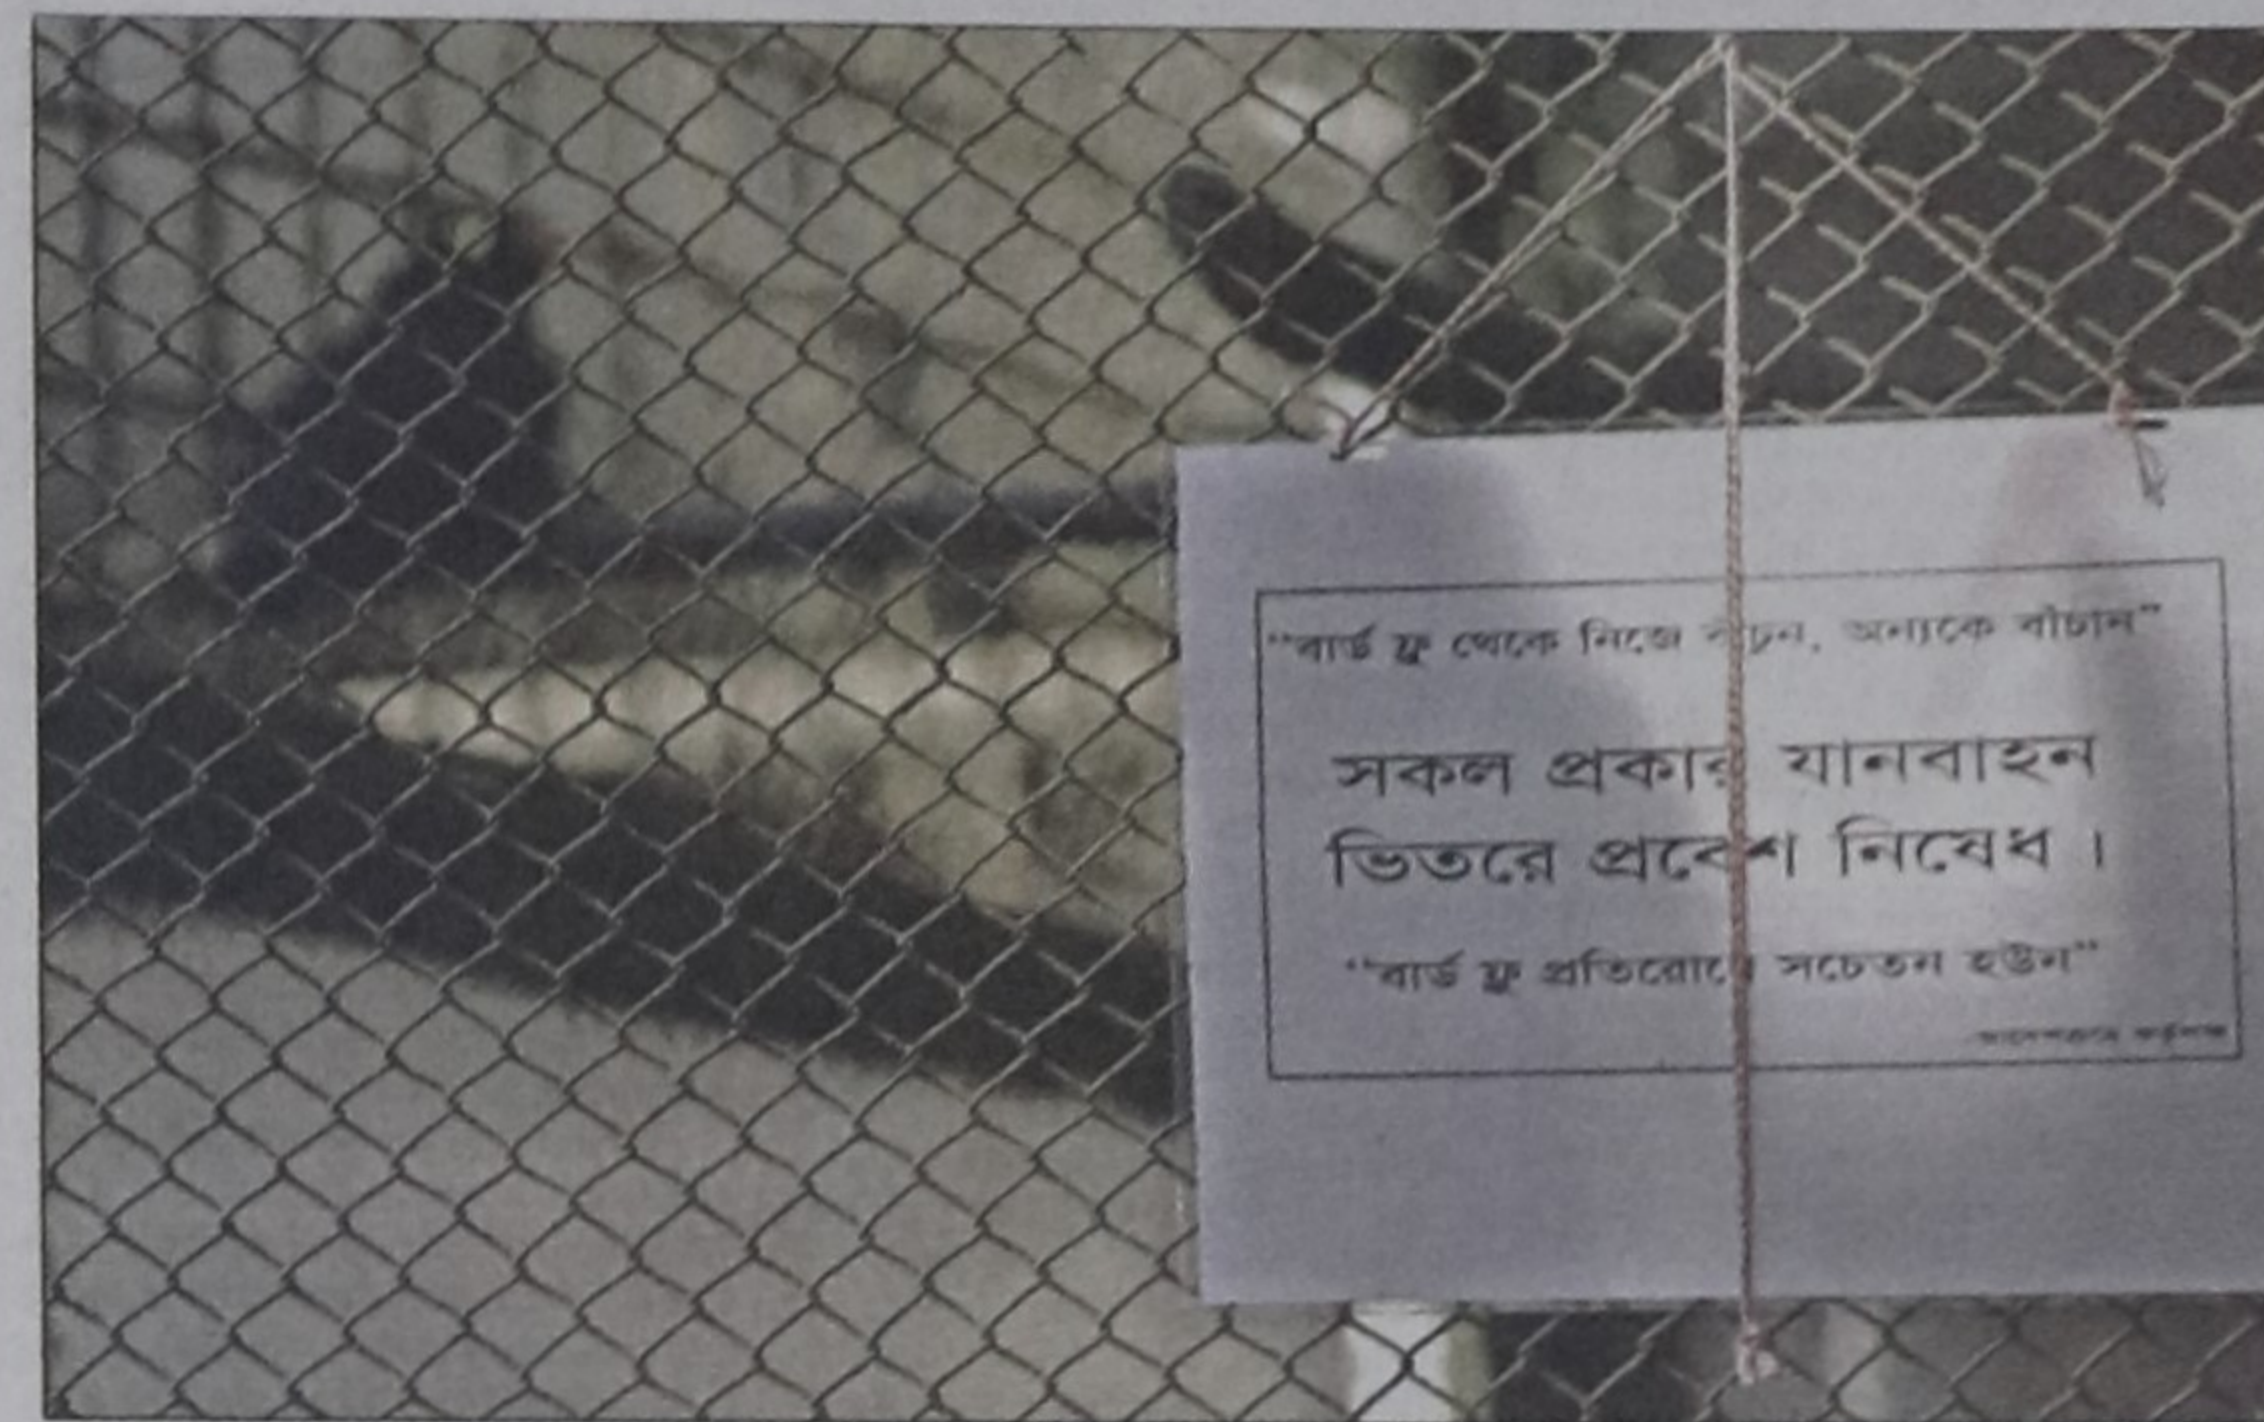 "বার্ড ফ্লু থেকে নিজে বাঁচুন, অন্যকে বাঁচান"
সকল প্রকার যানবাহন
ভিতরে প্রবেশ নিষেধ।
"বার্ড ফ্লু প্রতিরোধে সচেতন হউন"
আদেশক্রমে কর্তৃপক্ষ